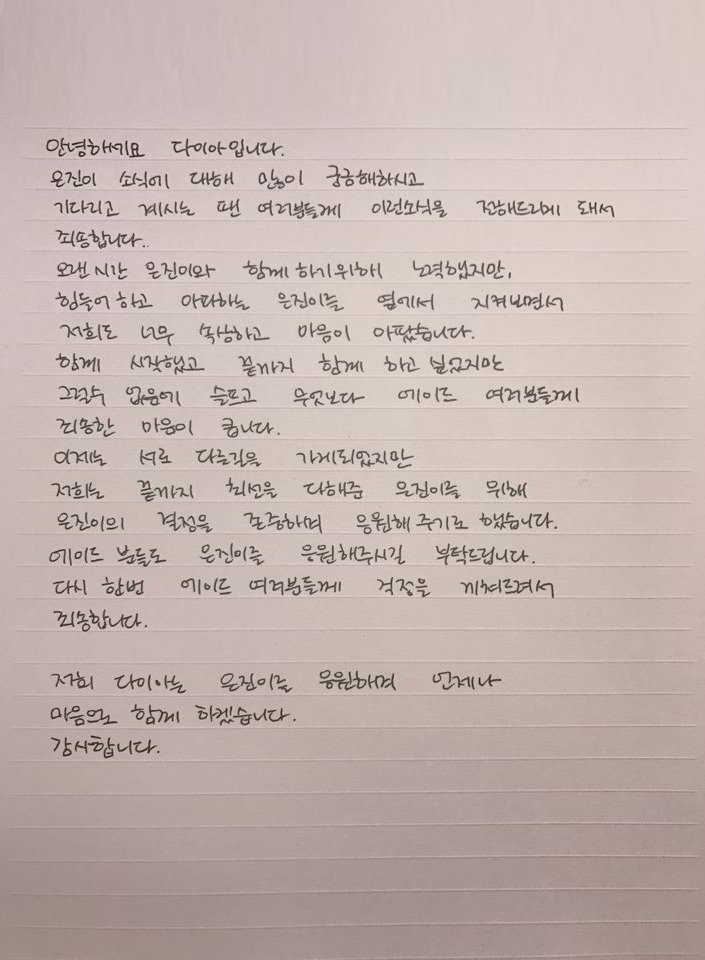 안녕하세요 다이아입니다.
은진이 소식에 대해 많이 궁금해하시고
기다리고 계시는 팬 여러분들께 이런소식을 전해드리게 돼서
죄송합니다..
오랜 시간 은진이와 함께 하기위해 노력했지만,
힘들어 하고 아파하는 은진이를 옆에서 지켜보면서
저희도 너무 속상하고 마음이 아팠습니다.
함께 시작했고 끝까지 함께 하고 싶었지만
그럴수 없음에 슬프고 무엇보다 에이드 여러분들께
죄송한 마음이 큽니다.
이제는 서로 다른길을 가게되었지만
저희는 끝까지 최선을 다해준 은진이를 위해
은진이의 결정을 존중하며 응원해 주기로 했습니다.
에이드 분들도 은진이를 응원해주시길 부탁드립니다.
다시 한번 에이드 여러분들께 걱정을 끼쳐드려서
죄송합니다.
저희 다이아는 은진이를 응원하며 언제나
마음으로 함께 하겠습니다.
감사합니다.